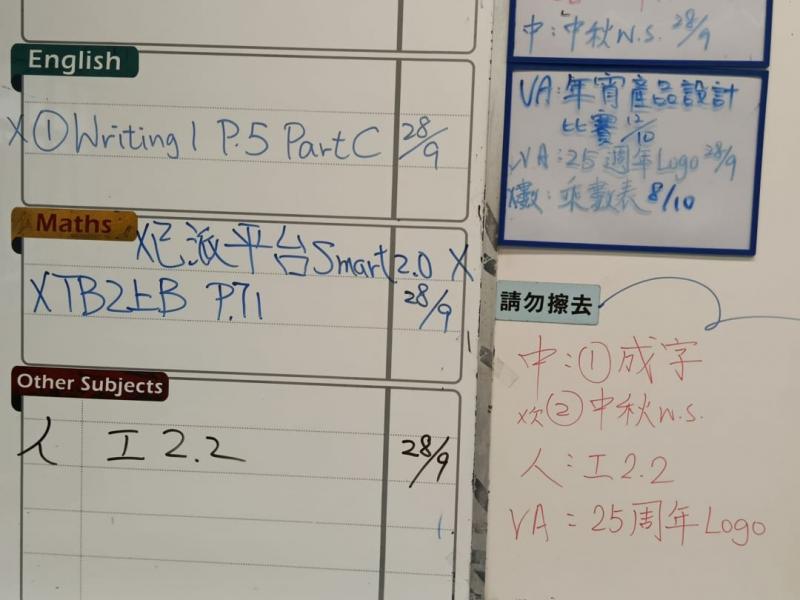 中：中秋N.S. 28/9
English
X ① Writing 1 P.5 Part C 28/9
Maths
派平台Smart 2.0 X
X TB2上B P.71 28/9
Other Subjects
人 工2.2 28/9
VA：年宵產品設計
比賽 12/10
VA：25週年Logo 28/9
數：乘數表 8/10
請勿擦去
中：① 成字
欠 ② 中秋N.S.
人：工2.2
VA：25周年Logo